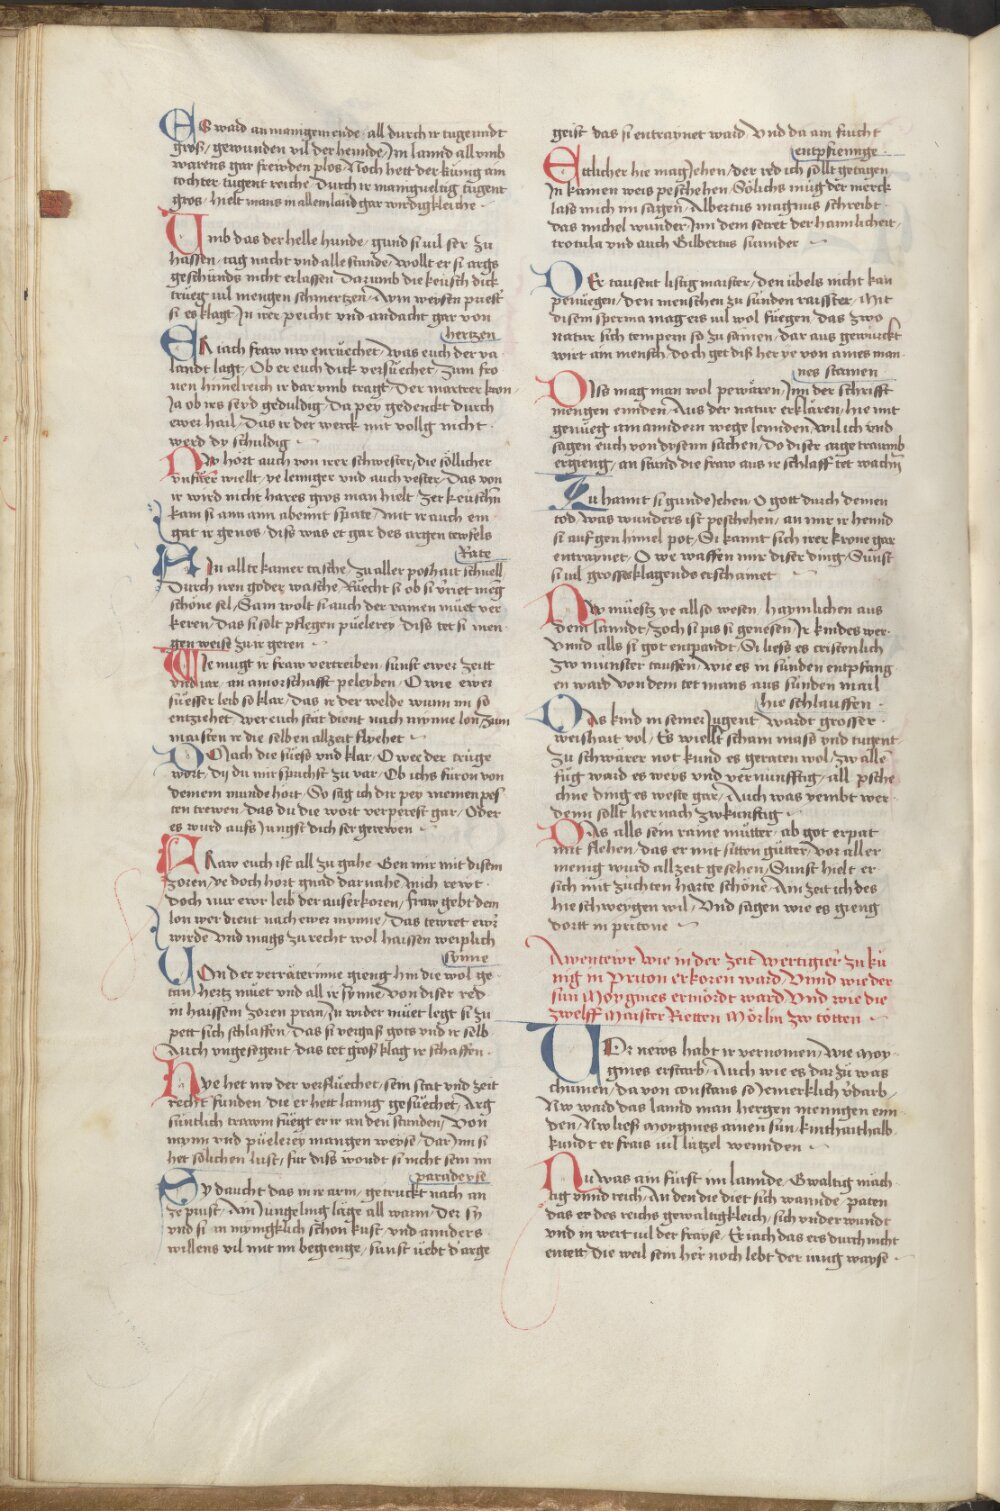 Es ward an manigem ende / all durch ir tugenndt
gros / gewunden vil der heinde / Im lannd all vmb
warens gar frewden plos / Noch hett der kunig ain
tochter tugent reiche / Durch ir manigueltig tugent
gros / hielt mans in allem land gar wirdigkleiche
Vmb das der helle hunde / gund si vil ser zu
hassen / tag nacht vnd alle stunde / wollt er si args
geschünds nicht erlassen Darumb die keusch dick
trueg vil mengen schmertzen / Aim weysen priest
si es klagt / In irer peicht vnd andacht gar von
hertzen
Er iach fraw nw enruechet / was euch der va
landt lagt / Ob er euch dick versuechet / zum fro
nen himelreich ir darumb tragt / Der martrer kron
Ja ob irs seyd geduldig / Da pey gedenckt durch
ewer hail / Das ir der werck mit vollg nicht
werd dy schuldig
Nw hört auch von irer schwester / die söllicher
vnfuer wiellt / ye lennger vnd auch vester / Das von
ir wird nicht hares gros man hielt / Zer keuschn
kam si an ainn abennt spate / mit ir auch ein
gat ir genos / diss was et gar des argen tewfels
Rate
Ain allte kamer tasche / zu aller poshait schnell
Durch iren goder wasche / Ruecht si ob si vriet meg
schöne sel / Sam wolt si auch der rainen müet ver
keren / Das si solt pflegen püelerey / diss tet si men
gen weise zu ir geren
Wie mugt ir fraw vertreiben / sunst ewer zeitt
vnd iar / an amorschafft peleyben / O wie ewer
suesser leib so klar / das ir der welde wunn im so
entziehet / wer euch stät dient nach mynne lon / zum
maisten ir die selben allzeit flyehet
Do iach die suess vnd klar / O wee der trüge
wort / dy du mir sprichst zu var / Ob ichs füron von
deinem munde hort / So sag ich dir pey meinen pes
ten trewen / das du die wort verperest gar / Oder
es wurd aufs Jungst dich ser gerewen
Fraw euch ist all zu gahe / Gen mir mit disem
zoren / ye doch hort gnad dar nahe / mich rewt
doch nur ewr leib der auserkoren / fraw gebt dem
lon wer dient nach ewer mynne / Das tewret ewr
wirde Vnd mags zu recht wol haissen weiplich
Synne
Von der verräterinne gieng hin die wol ge
tan / hertz müet vnd all ir synne / von diser red
in haissem zoren pran / In wider müet legt si zu
pett sich schlaffen / Das si vergaß gots vnd ir selb
Auch vngesegent / das tet groß klag ir schaffen
Nye het nw der verfluechet / sein stat vnd zeit
recht funden / die er hett lanng gesuechet / Arg
süntlich trawm fuegt er ir an den stunden / von
mynn vnd püelerey mangen weyse / Dar Inn si
het solichen lust / fur diss wondt si nicht sein im
paradeyse
Sy daucht das in ir arm / getruckt nach an
ze prust / Ain Jungeling läge all warm / Der sy
vnd si in mynigklich schon kust / vnd annders
willens vil mit im begienge / sunst üebt d'arge
geist das si entraynet ward / Vnd da ain frucht
entpfiennge
Ettlicher hie mag Jehen / der red ich sollt getagen
In kainen weis peschehen / Sölichs müg der merck
lass mich im sagen / Albertus magnus schreibt
das michel wunder / Inn dem secret der haimlicheit /
trotula vnd auch Gilbertus sunnder
Der tausent listig maister / den übels nicht kan
penüegen / den menschen zu sünden raisster / Mit
disem sperma mag ers vil wol füegen / das zwo
natur sich tempern so zu samen / dar aus gewürckt
wirt ain mensch / doch get diß her ye von aines man
nes stamen
Diss mag man wol pewären / Inn der schrifft
mengen ennden / Aus der natur erklären / hie mit
genueg am anndern wege lennden / wil ich vnd
sagen euch von dysenn sachen / Do diser arge traumb
ergieng / an stund die fraw aus ir schlaff tet wachn
Zu hannt si gunde Jehen / O gott durch deinen
tod / was wunders ist peschehen / an mir ir hennd
si auf gen himel pot / Si kannt sich irer krone gar
entraynet / O we waffen mir diser ding / Sunst
si vil grosses klagends erschainet
Nw müesz ye allso wesen / haymlichen aus
dem lanndt / zoch si pis si genesen / Ir kindes wer
Vnnd alls si got entpandt / Si liess es cristenlich
zw münster tauffen / wie es in sünden entpfang
en ward von dem tet mans aus sunden mail
hie schlauffen
Das kind in seiner Jugent / wardt grosser
weishait vol / Es wiellt scham mass vnd tugent
zu schwärer not kund es geraten wol / zw alle
füg ward es weys vnd vernunfftig / all psche
chne ding es weste gar / Auch was yembt wer
denn sollt hernach zwkunftig
Das alls sein raine mütter / ab got erpat
mit flehen / das er mit sitten gütter / vor aller
menig wurd allzeit gesehen / Sunst hielt er
sich mit züchten harte schöne / Ain zeit ich des
hie schweygen wil / Vnd sagen wie es gieng
dortt in pritone
Awentewr wie in der zeit wertigier zu kü
nig in Priton erkoren ward / Vnnd wie der
sün Moygines ermördt ward Vnd wie die
zwelff Maister Rietten Mörlin zw tötten
Vor news habt ir vernomen / wie moy
gines erstarb / Auch wie es dar zü was
chumen / da von constans so Jemerklich v'darb
Nw ward das lannd man hergen menngen enn
den / Nw liess moygines ainen sun / kinthaithalb
kundt er frais vil lützel wennden
Nu was ain fürst im lannde / Gwaltig mäch
tig vnnd reich / An den die diet sich wannde / paten
das er des reichs gewaltigkleich / sich vnder wundt
vnd in wert vil der frayse / Er iach das ers durch nicht
entett / die weil sein her noch lebt der iung wayse